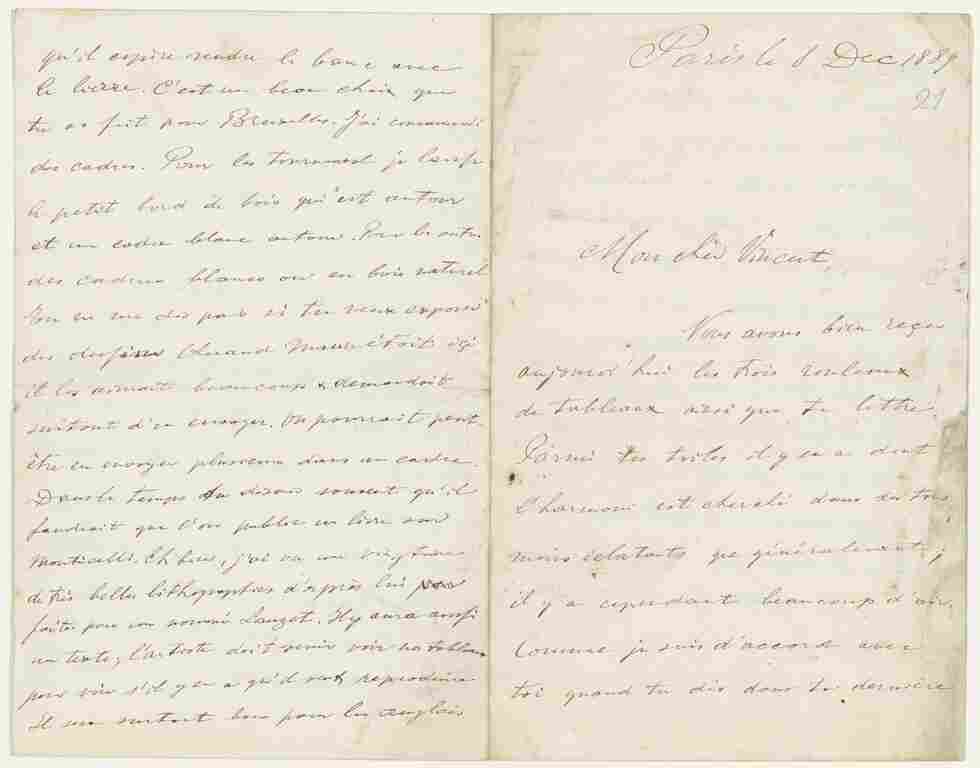 qu'il espère vendre le banc avec
le lierre. C'est un beau choix que
tu as fait pour Bruxelles. J'ai commandé
des cadres. Pour les tournesol je laisse
le petit bord de bois qui est autour
et un cadre blanc autour. Pour les autres
des cadres blancs ou en bois naturel
Tu ne me dis pas si tu veux exposer
des dessins Quand Maus était ici
il les aimait beaucoup & demandait
surtout d'en envoyer. On pourrait peut-
être en envoyer plusieurs dans un cadre.
Dans le temps tu disais souvent qu'il
faudrait que l'on publie un livre sur
Monticelli. Eh bien, j'ai vu une vingtaine
de très belles lithographies d'après lui
faites par un nommé Lauzet. Il y aura aussi
un texte, l'artiste doit venir voir nos tableaux
pour voir s'il y en a qu'il veut reproduire
Il sera surtout bon pour les anglais
Paris le 8 Dec 1889
21
Mon cher Vincent,
Nous avons bien reçu
aujourd'hui les trois rouleaux
de tableaux ainsi que ta lettre.
Parmi tes toiles il y en a dont
l'harmonie est cherché dans des tons
moins éclatants que généralement;
il y a cependant beaucoup d'air.
Comme je suis d'accord avec
toi quand tu dis dans ta dernière